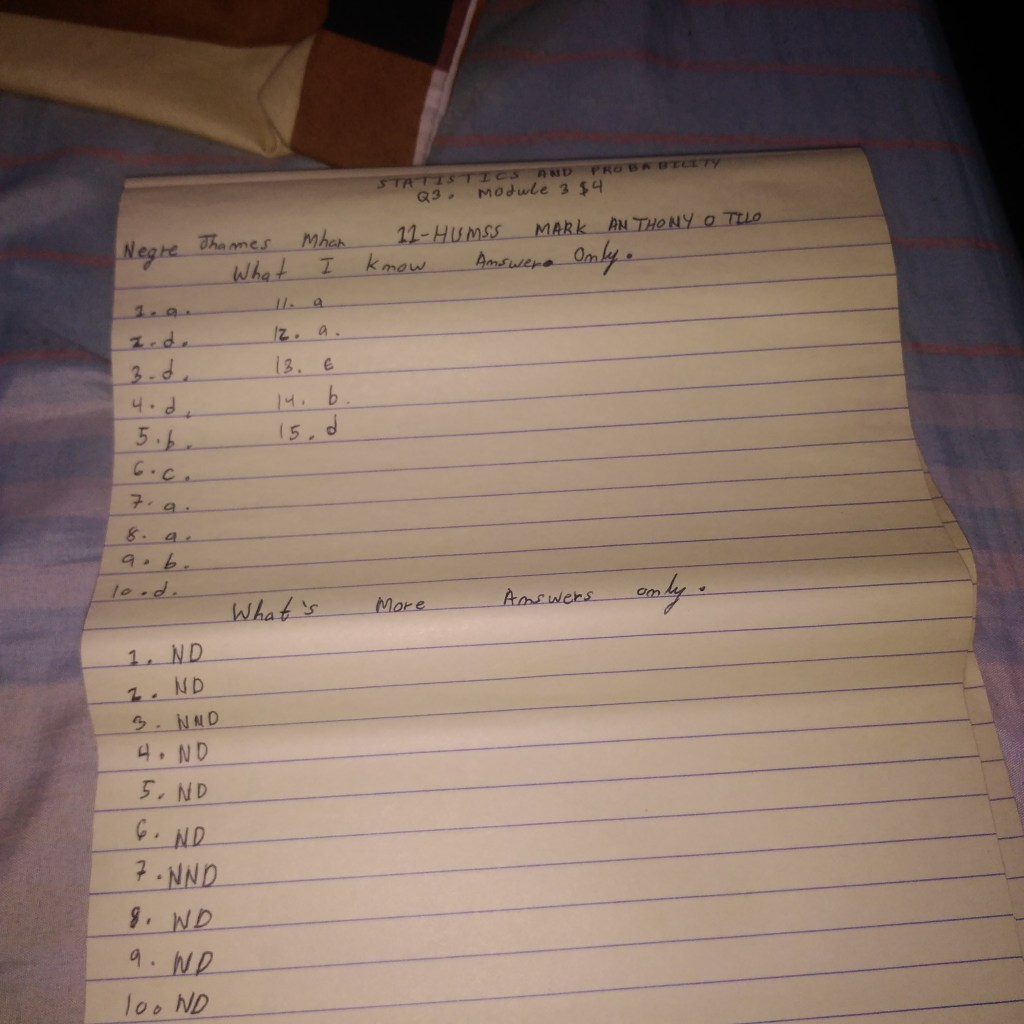 STATISTICS AND PROBABILITY
Q3. Module 3 $4
Negre Jhames Mhar 11-HUMSS MARK ANTHONY O TILO
What I know Answer. Only.
1. a. 11. a
2. d. 12. a.
3. d. 13. c
4. d. 14. b.
5. b. 15. d
6. c.
7. a.
8. a.
9. b.
10. d.
What's More Answers only.
1. ND
2. ND
3. NND
4. ND
5. ND
6. ND
7. NND
8. ND
9. ND
10. ND